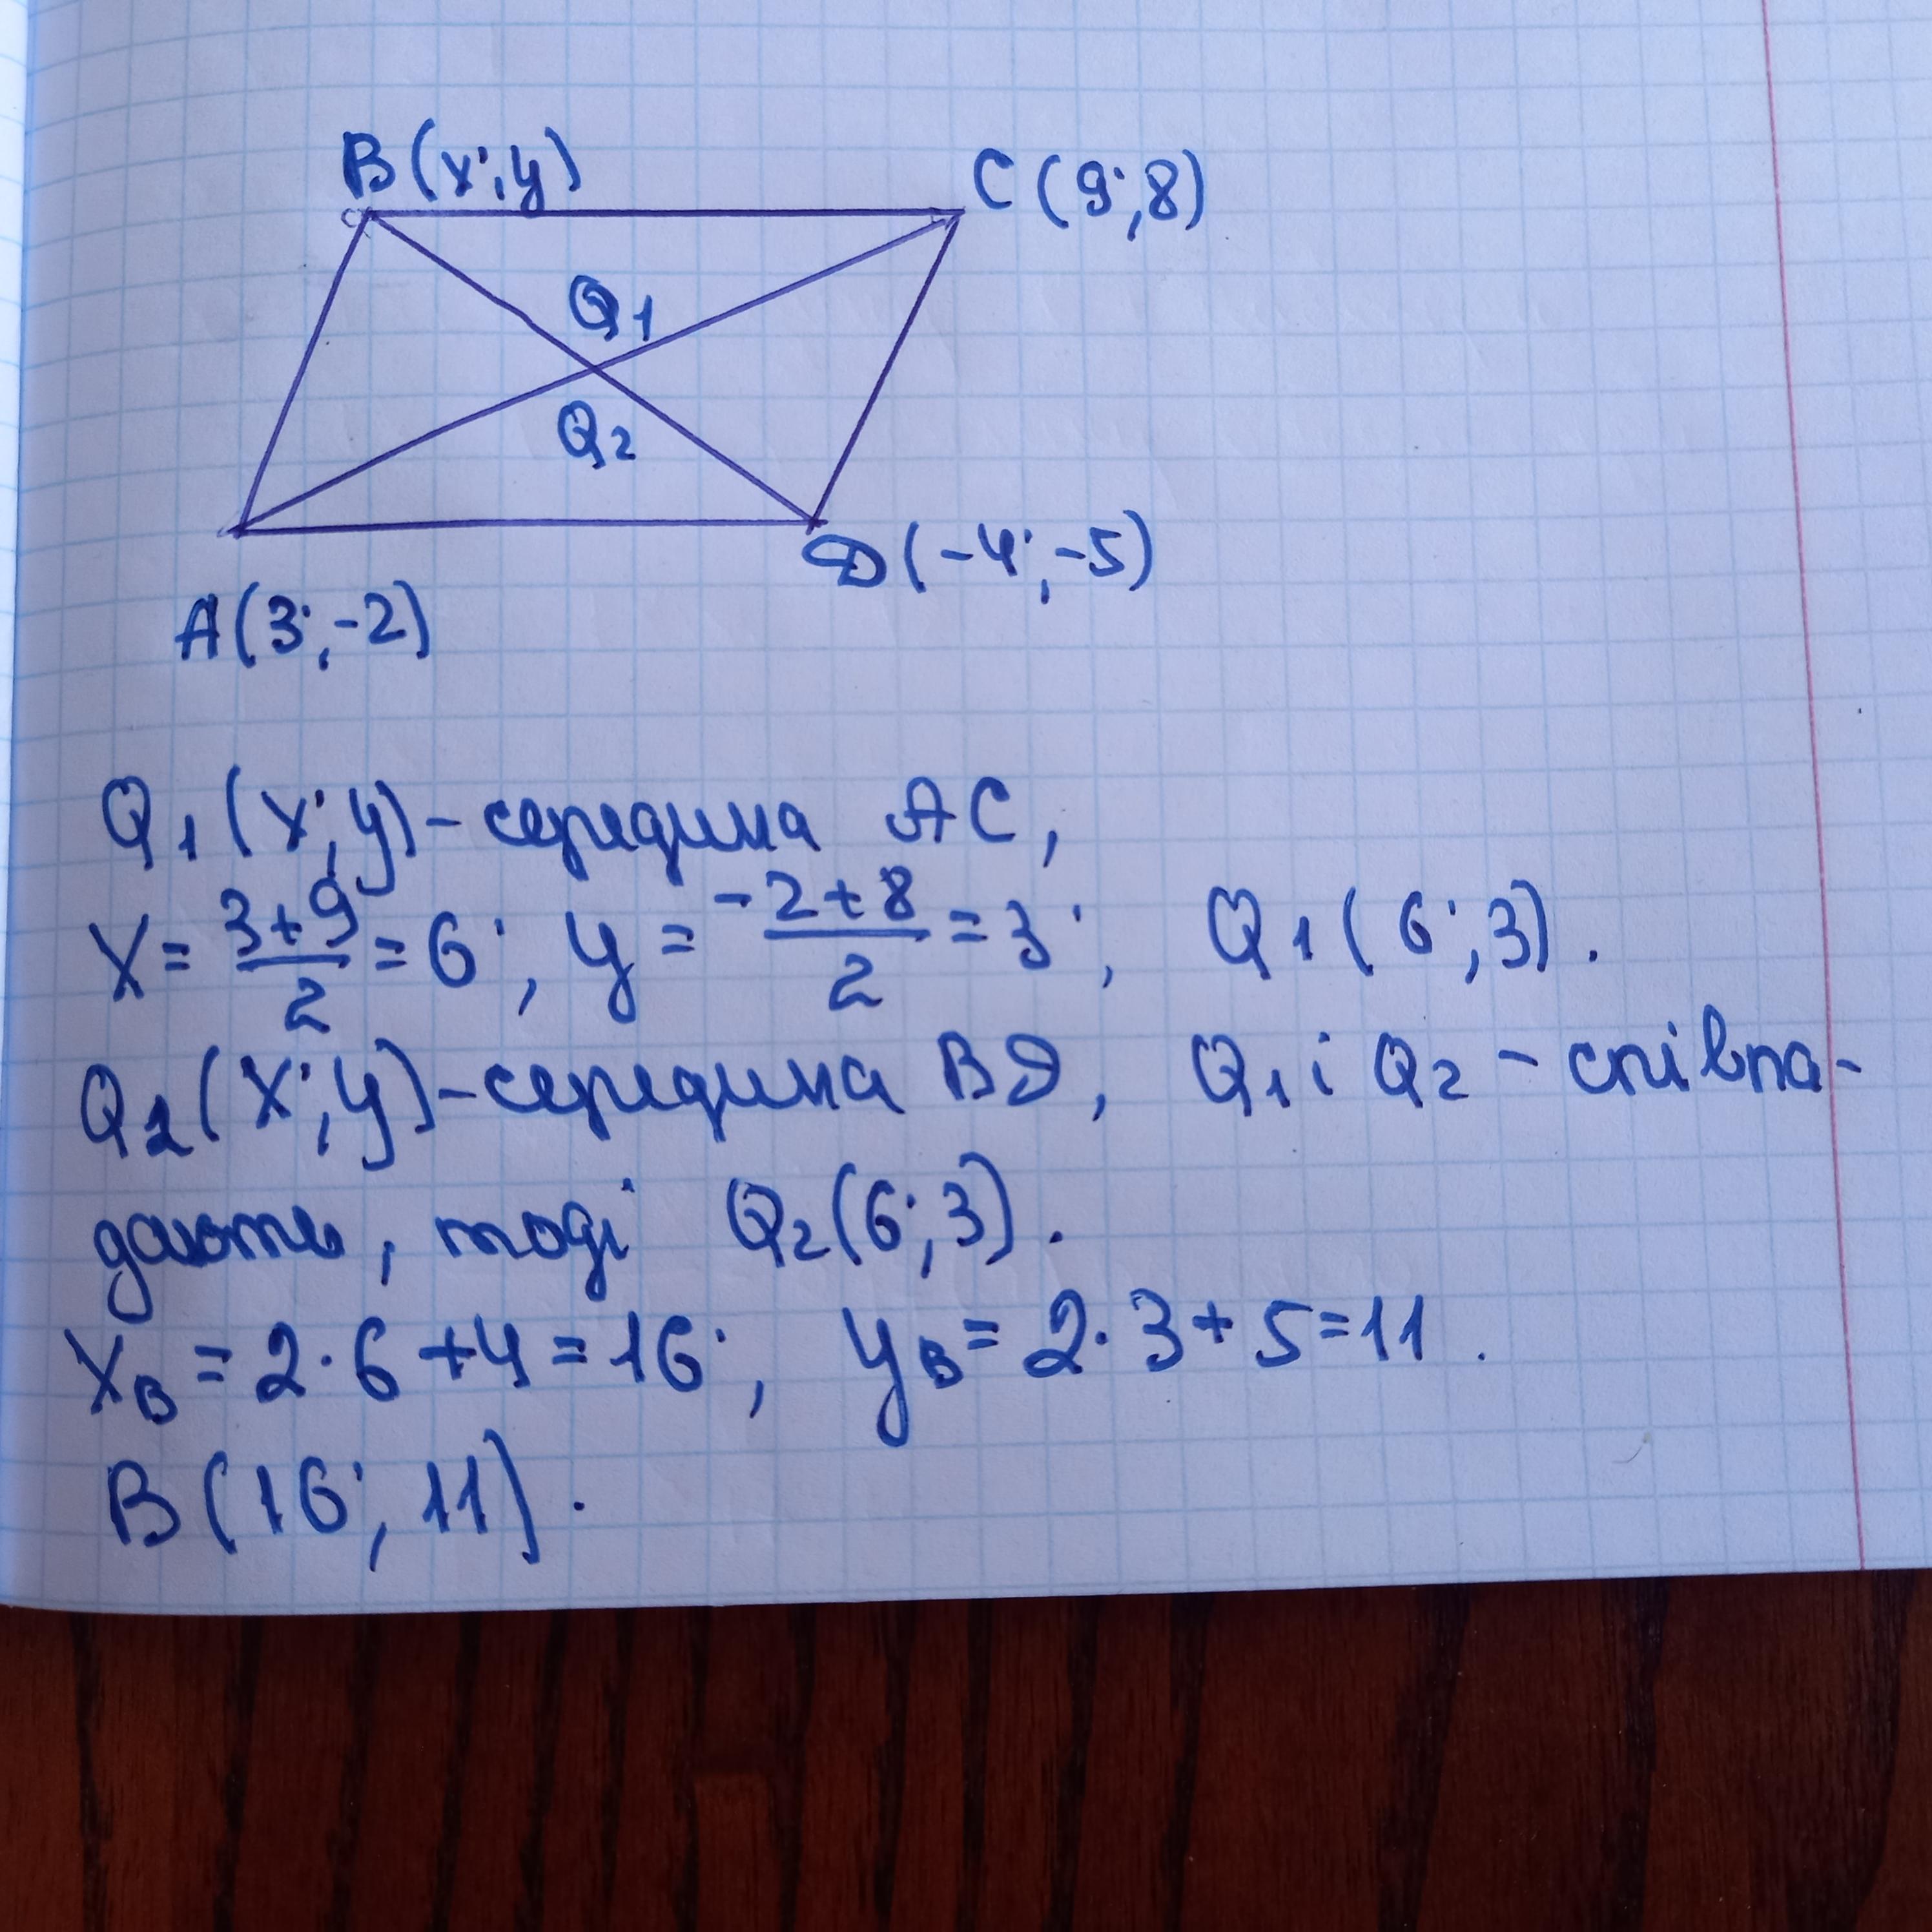 B(x; y)
C(9; 8)
Q1
Q2
D(-4; -5)
A(3; -2)
Q1(x; y) - середина AC,
x = (3+9)/2 = 6; y = (-2+8)/2 = 3; Q1(6; 3).
Q2(x; y) - середина BD, Q1 і Q2 - співпа-
дають, тоді Q2(6; 3).
xB = 2·6+4=16; yB = 2·3+5=11.
B(16; 11).